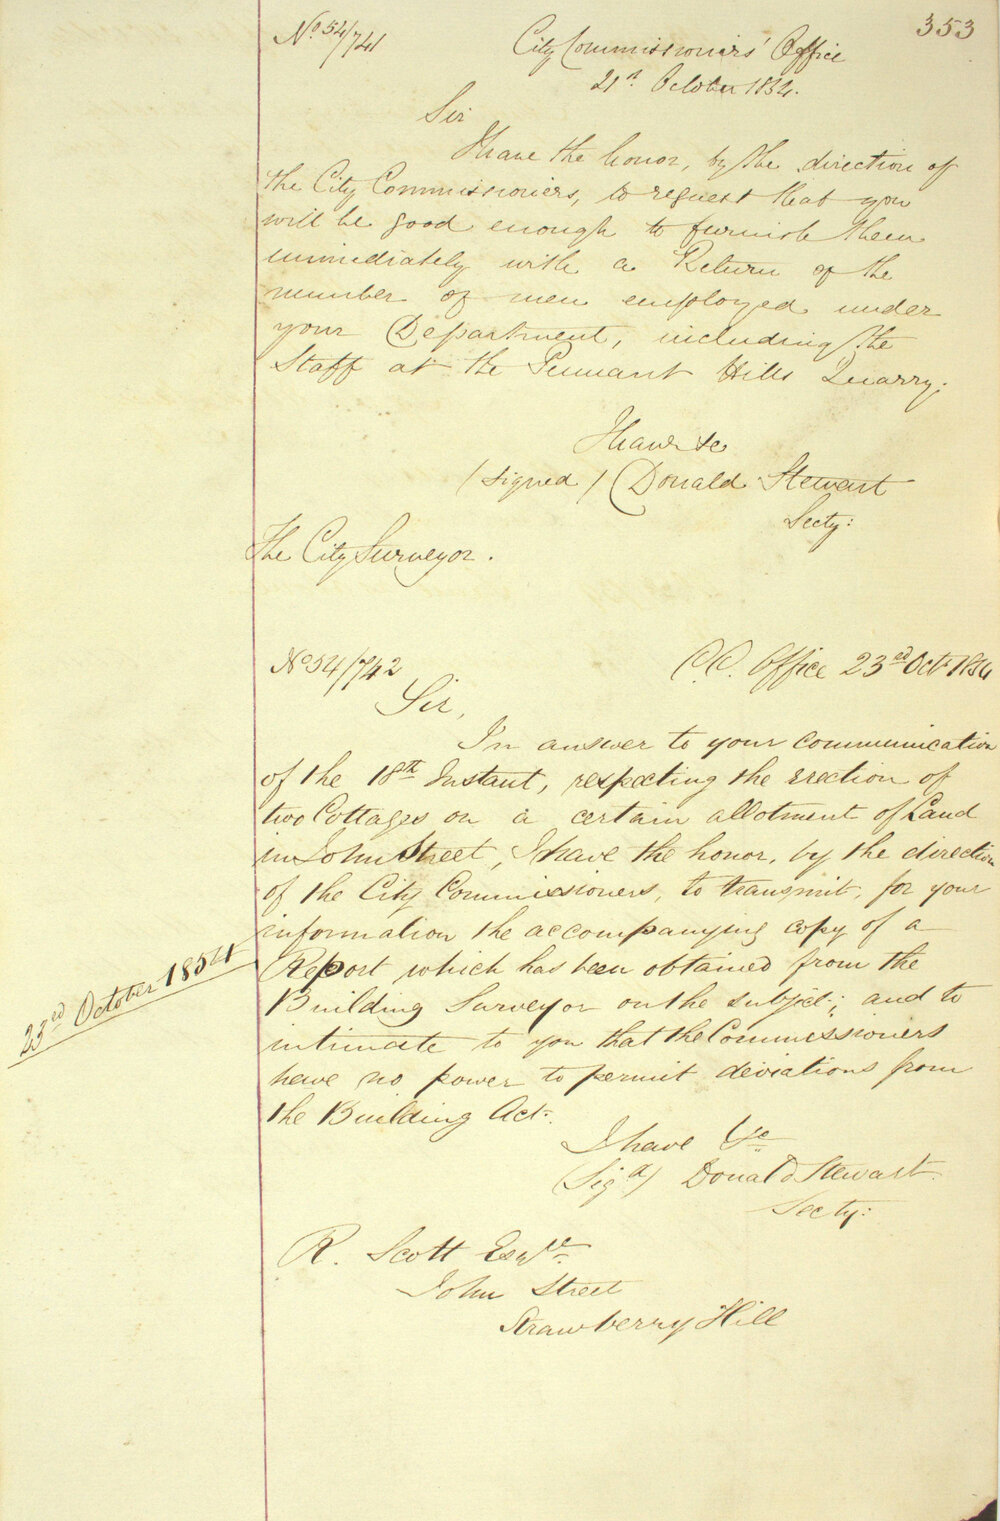 353
No 54/741
City Commissioners' Office
21st October 1854.
Sir
I have the honor, by the direction of
the City Commissioners, to request that you
will be good enough to furnish them
immediately with a Return of the
number of men employed under
your Department, including the
Staff at the Pennant Hills Quarry.
I have &c
(signed) Donald Stewart
Secty:
The City Surveyor.
No 54/742
C.C. Office 23rd Oct 1854
Sir,
In answer to your communication
of the 18th Instant, respecting the erection of
two Cottages on a certain allotment of Land
in John Street, I have the honor, by the direction
of the City Commissioners, to transmit, for your
information the accompanying copy of a
Report which has been obtained from the
Building Surveyor on the subject; and to
intimate to you that the Commissioners
have no power to permit deviations from
the Building Act.
23rd October 1854
I have &c
(Sigd) Donald Stewart
Secty:
R. Scott Esqre
John Street
Strawberry Hill